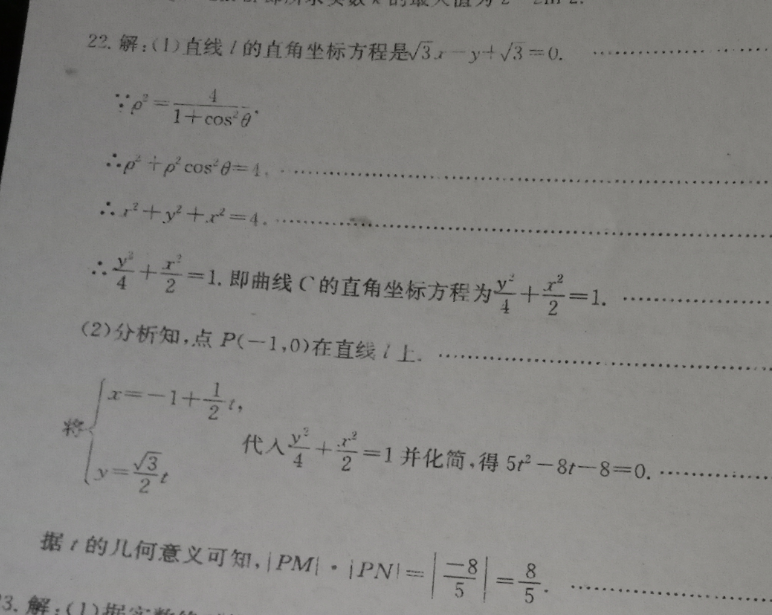 22. 解:(1)直线 l 的直角坐标方程是√3x－y＋√3＝0. ………………
∵ρ²＝4/(1＋cos²θ),
∴ρ²＋ρ²cos²θ＝4. ………………
∴x²＋y²＋x²＝4. ………………
∴y²/4＋x²/2＝1. 即曲线 C 的直角坐标方程为y²/4＋x²/2＝1. ………………
(2)分析知,点 P(－1,0)在直线 l 上. ………………
将{x＝－1＋1/2 t, y＝√3/2 t 代入y²/4＋x²/2＝1 并化简,得 5t²－8t－8＝0. ………………
据 t 的几何意义可知,|PM|·|PN|＝|－8/5|＝8/5. ………………
3. 解:(1)据